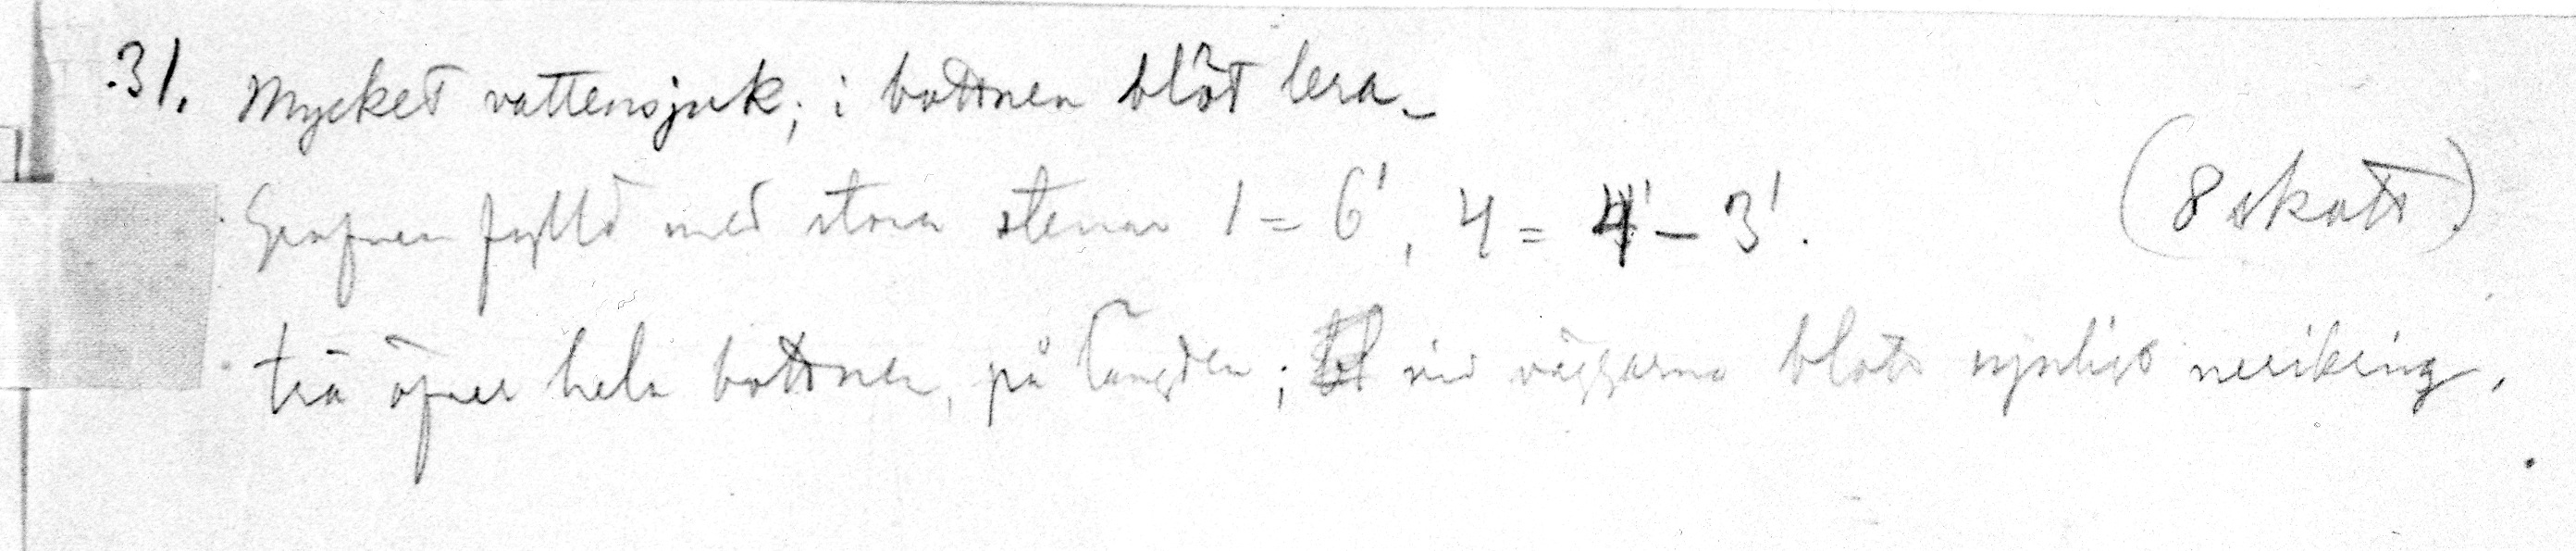 31. Mycket vattensjuk; i bottnen blöt lera –
Grafven fylld med stora stenar 1 = 6', 4 = 4' – 3'. (8 skott)
trä öfver hela bottnen, på längden; vid väggarna blott synligt